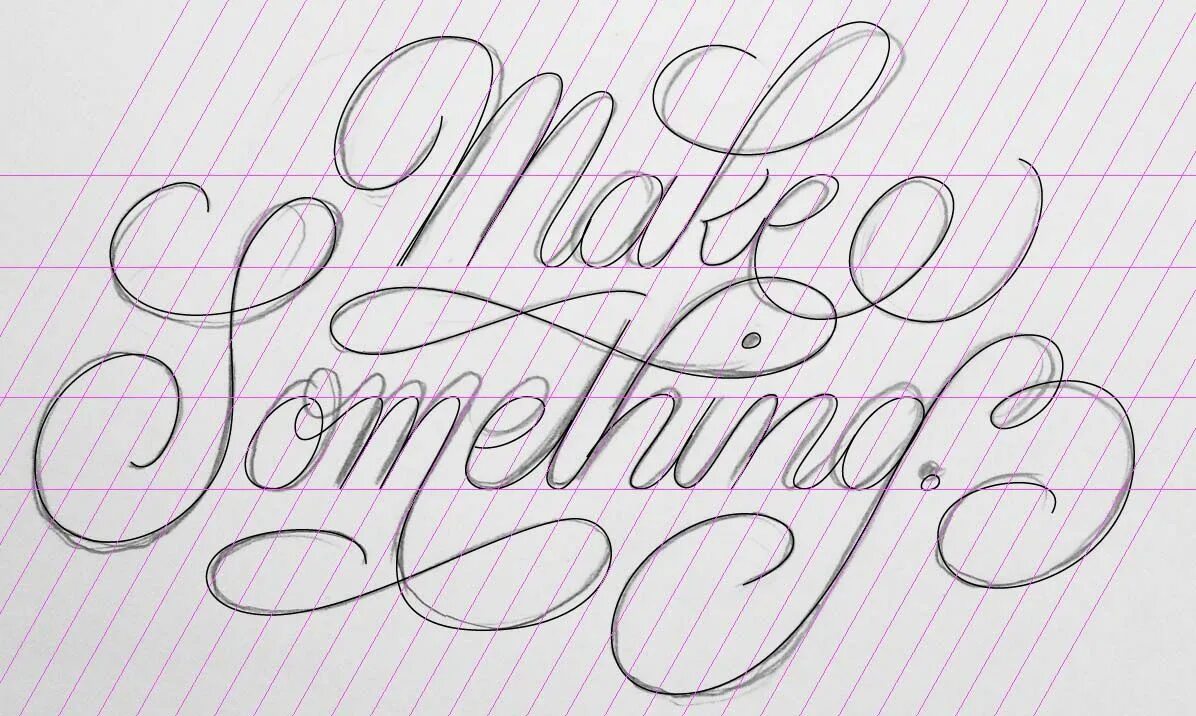 Make
Something.